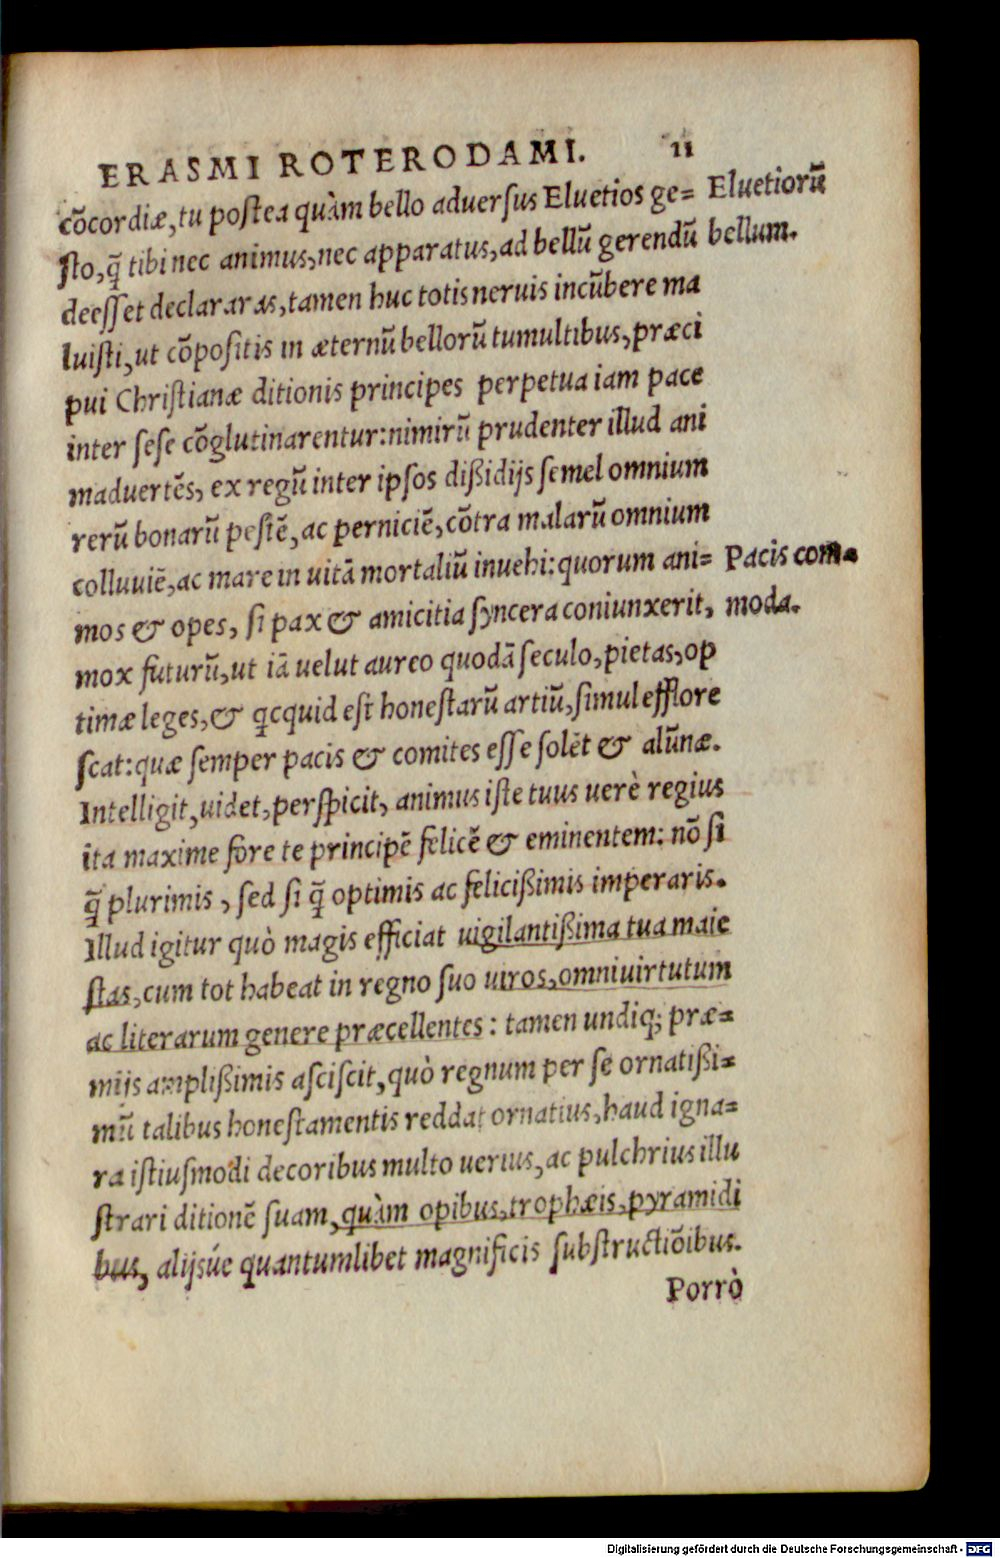 ERASMI ROTERODAMI. 11
cõcordiæ, tu postea quàm bello aduersus Eluetios ge= Eluetiorũ
sto, q̃ tibi nec animus, nec apparatus, ad bellũ gerendũ bellum.
deesset declararas, tamen huc totis neruis incũbere ma
luisti, ut cõpositis in æternũ bellorũ tumultibus, præci
pui Christianæ ditionis principes perpetua iam pace
inter sese cõglutinarentur: nimirũ prudenter illud ani
maduertẽs, ex regũ inter ipsos dißidijs semel omnium
rerũ bonarũ pestẽ, ac perniciẽ, cõtra malarũ omnium
colluuiẽ, ac mare in uitã mortaliũ inuehi: quorum ani= Pacis com=
mos & opes, si pax & amicitia syncera coniunxerit, moda.
mox futurũ, ut iã uelut aureo quodã seculo, pietas, op
timæ leges, & qcquid est honestarũ artiũ, simul efflore
scat: quæ semper pacis & comites esse solẽt & alũnæ.
Intelligit, uidet, perspicit, animus iste tuus uerè regius
ita maxime fore te principẽ felicẽ & eminentem: nõ si
q̃ plurimis, sed si q̃ optimis ac felicißimis imperaris.
Illud igitur quò magis efficiat uigilantißima tua maie
stas, cum tot habeat in regno suo uiros, omni uirtutum
ac literarum genere præcellentes: tamen undiq; præ=
mijs amplißimis asciscit, quò regnum per se ornatißi=
mũ talibus honestamentis reddat ornatius, haud igna=
ra istiusmodi decoribus multo uerius, ac pulchrius illu
strari ditionẽ suam, quàm opibus, trophæis, pyramidi
bus, alijsúe quantumlibet magnificis substructiõibus.
Porrò
Digitalisierung gefördert durch die Deutsche Forschungsgemeinschaft - DFG